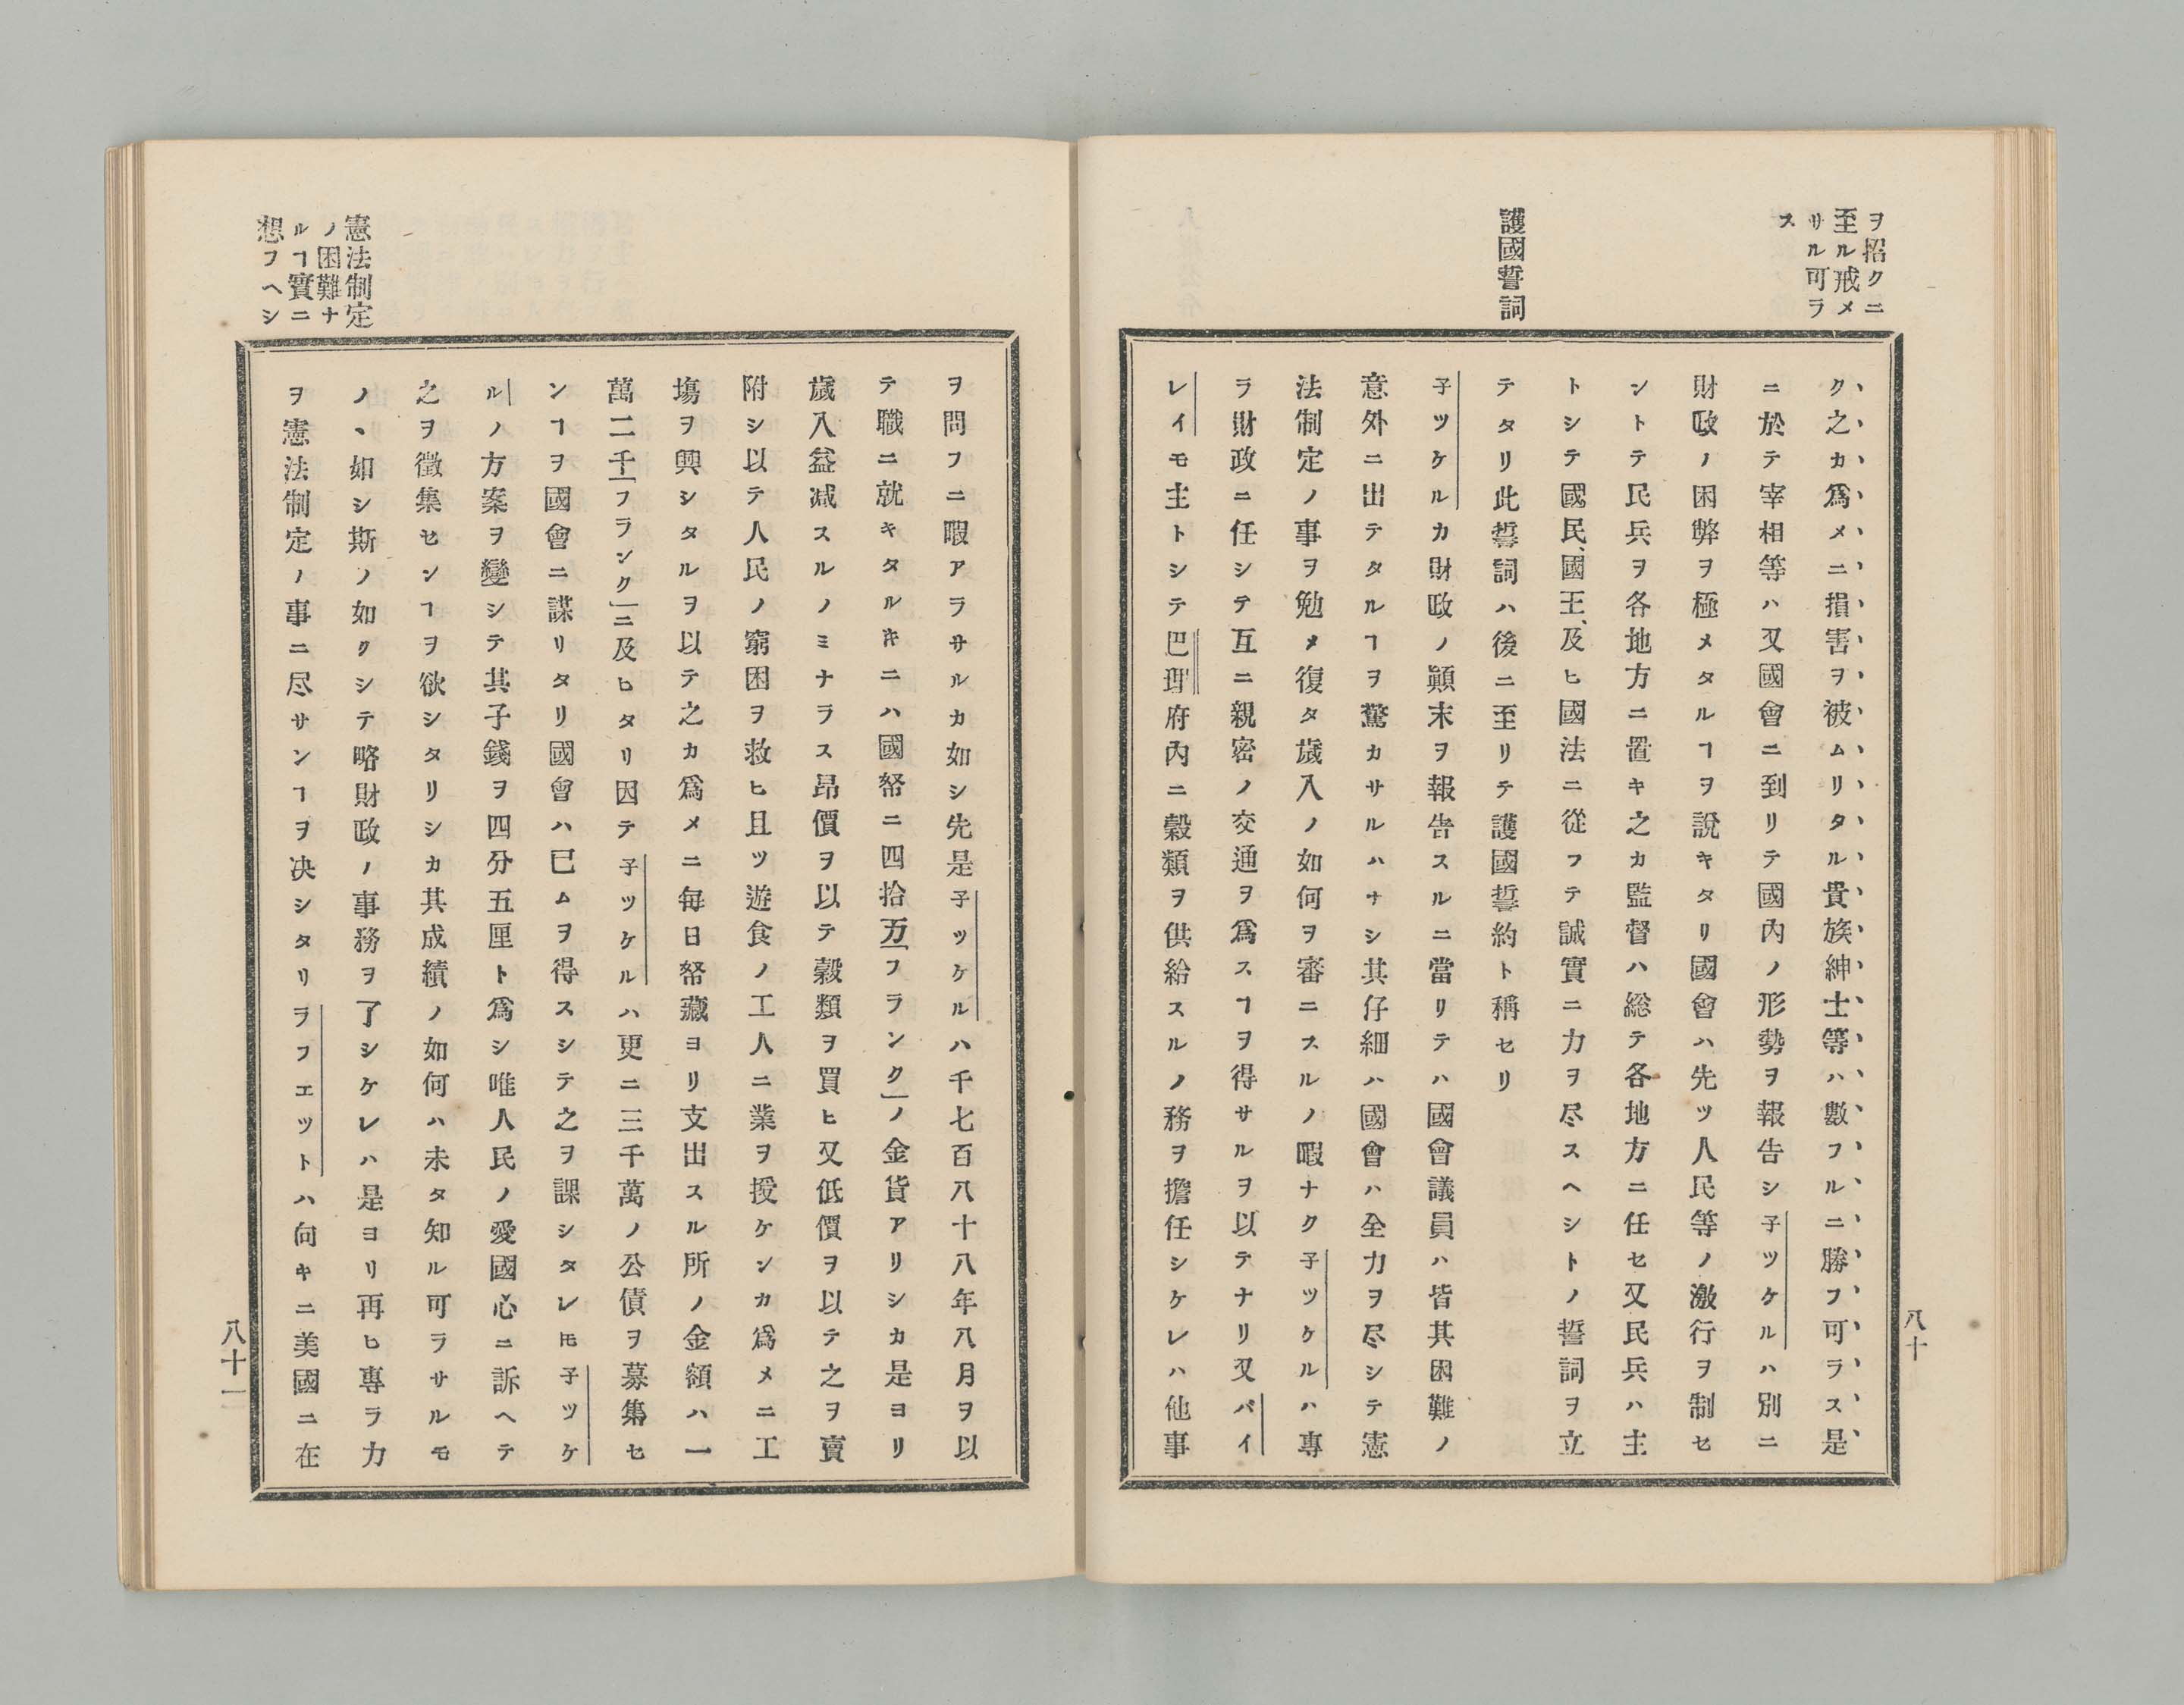 ヲ招クニ
至ル戒メ
サル可ラ
ス
護國誓詞
八十
ク之カ爲メニ損害ヲ被ムリタル貴族紳士等ハ數フルニ勝フ可ラス是
ニ於テ宰相等ハ又國會ニ到リテ國內ノ形勢ヲ報告シ子ツケルハ別ニ
財政ノ困弊ヲ極メタルヿヲ說キタリ國會ハ先ツ人民等ノ激行ヲ制セ
ントテ民兵ヲ各地方ニ置キ之カ監督ハ総テ各地方ニ任セ又民兵ハ主
トシテ國民、國王、及ヒ國法ニ從フテ誠實ニ力ヲ尽スヘシトノ誓詞ヲ立
テタリ此誓詞ハ後ニ至リテ護國誓約ト稱セリ
子ツケルカ財政ノ顚末ヲ報告スルニ當リテハ國會議員ハ皆其困難ノ
意外ニ出テタルヿヲ驚カサルハナシ其仔細ハ國會ハ全力ヲ尽シテ憲
法制定ノ事ヲ勉メ復タ歲入ノ如何ヲ審ニスルノ暇ナク子ツケルハ專
ラ財政ニ任シテ互ニ親密ノ交通ヲ爲スヿヲ得サルヲ以テナリ又バイ
レイモ主トシテ巴理府內ニ穀類ヲ供給スルノ務ヲ擔任シケレハ他事
ヲ問フニ暇アラサルカ如シ先是子ツケルハ千七百八十八年八月ヲ以
テ職ニ就キタルキニハ國帑ニ四拾万「フランク」ノ金貨アリシカ是ヨリ
歲入益減スルノミナラス昂價ヲ以テ穀類ヲ買ヒ又低價ヲ以テ之ヲ賣
附シ以テ人民ノ窮困ヲ救ヒ且ツ遊食ノ工人ニ業ヲ授ケンカ爲メニ工
塲ヲ興シタルヲ以テ之カ爲メニ每日帑藏ヨリ支出スル所ノ金額ハ一
萬二千「フランク」ニ及ヒタリ因テ子ツケルハ更ニ三千萬ノ公債ヲ募集セ
ンヿヲ國會ニ謀リタリ國會ハ已ムヲ得スシテ之ヲ課シタレ𪜈子ツケ
ルノ方案ヲ變シテ其子錢ヲ四分五厘ト爲シ唯人民ノ愛國心ニ訴ヘテ
之ヲ徵集センヿヲ欲シタリシカ其成績ノ如何ハ未タ知ル可ラサルモ
ノヽ如シ斯ノ如クシテ略財政ノ事務ヲ了シケレハ是ヨリ再ヒ專ラ力
ヲ憲法制定ノ事ニ尽サンヿヲ决シタリヲフエットハ向キニ美國ニ在
憲法制定
ノ困難ナ
ルヿ實ニ
想フヘシ
八十一